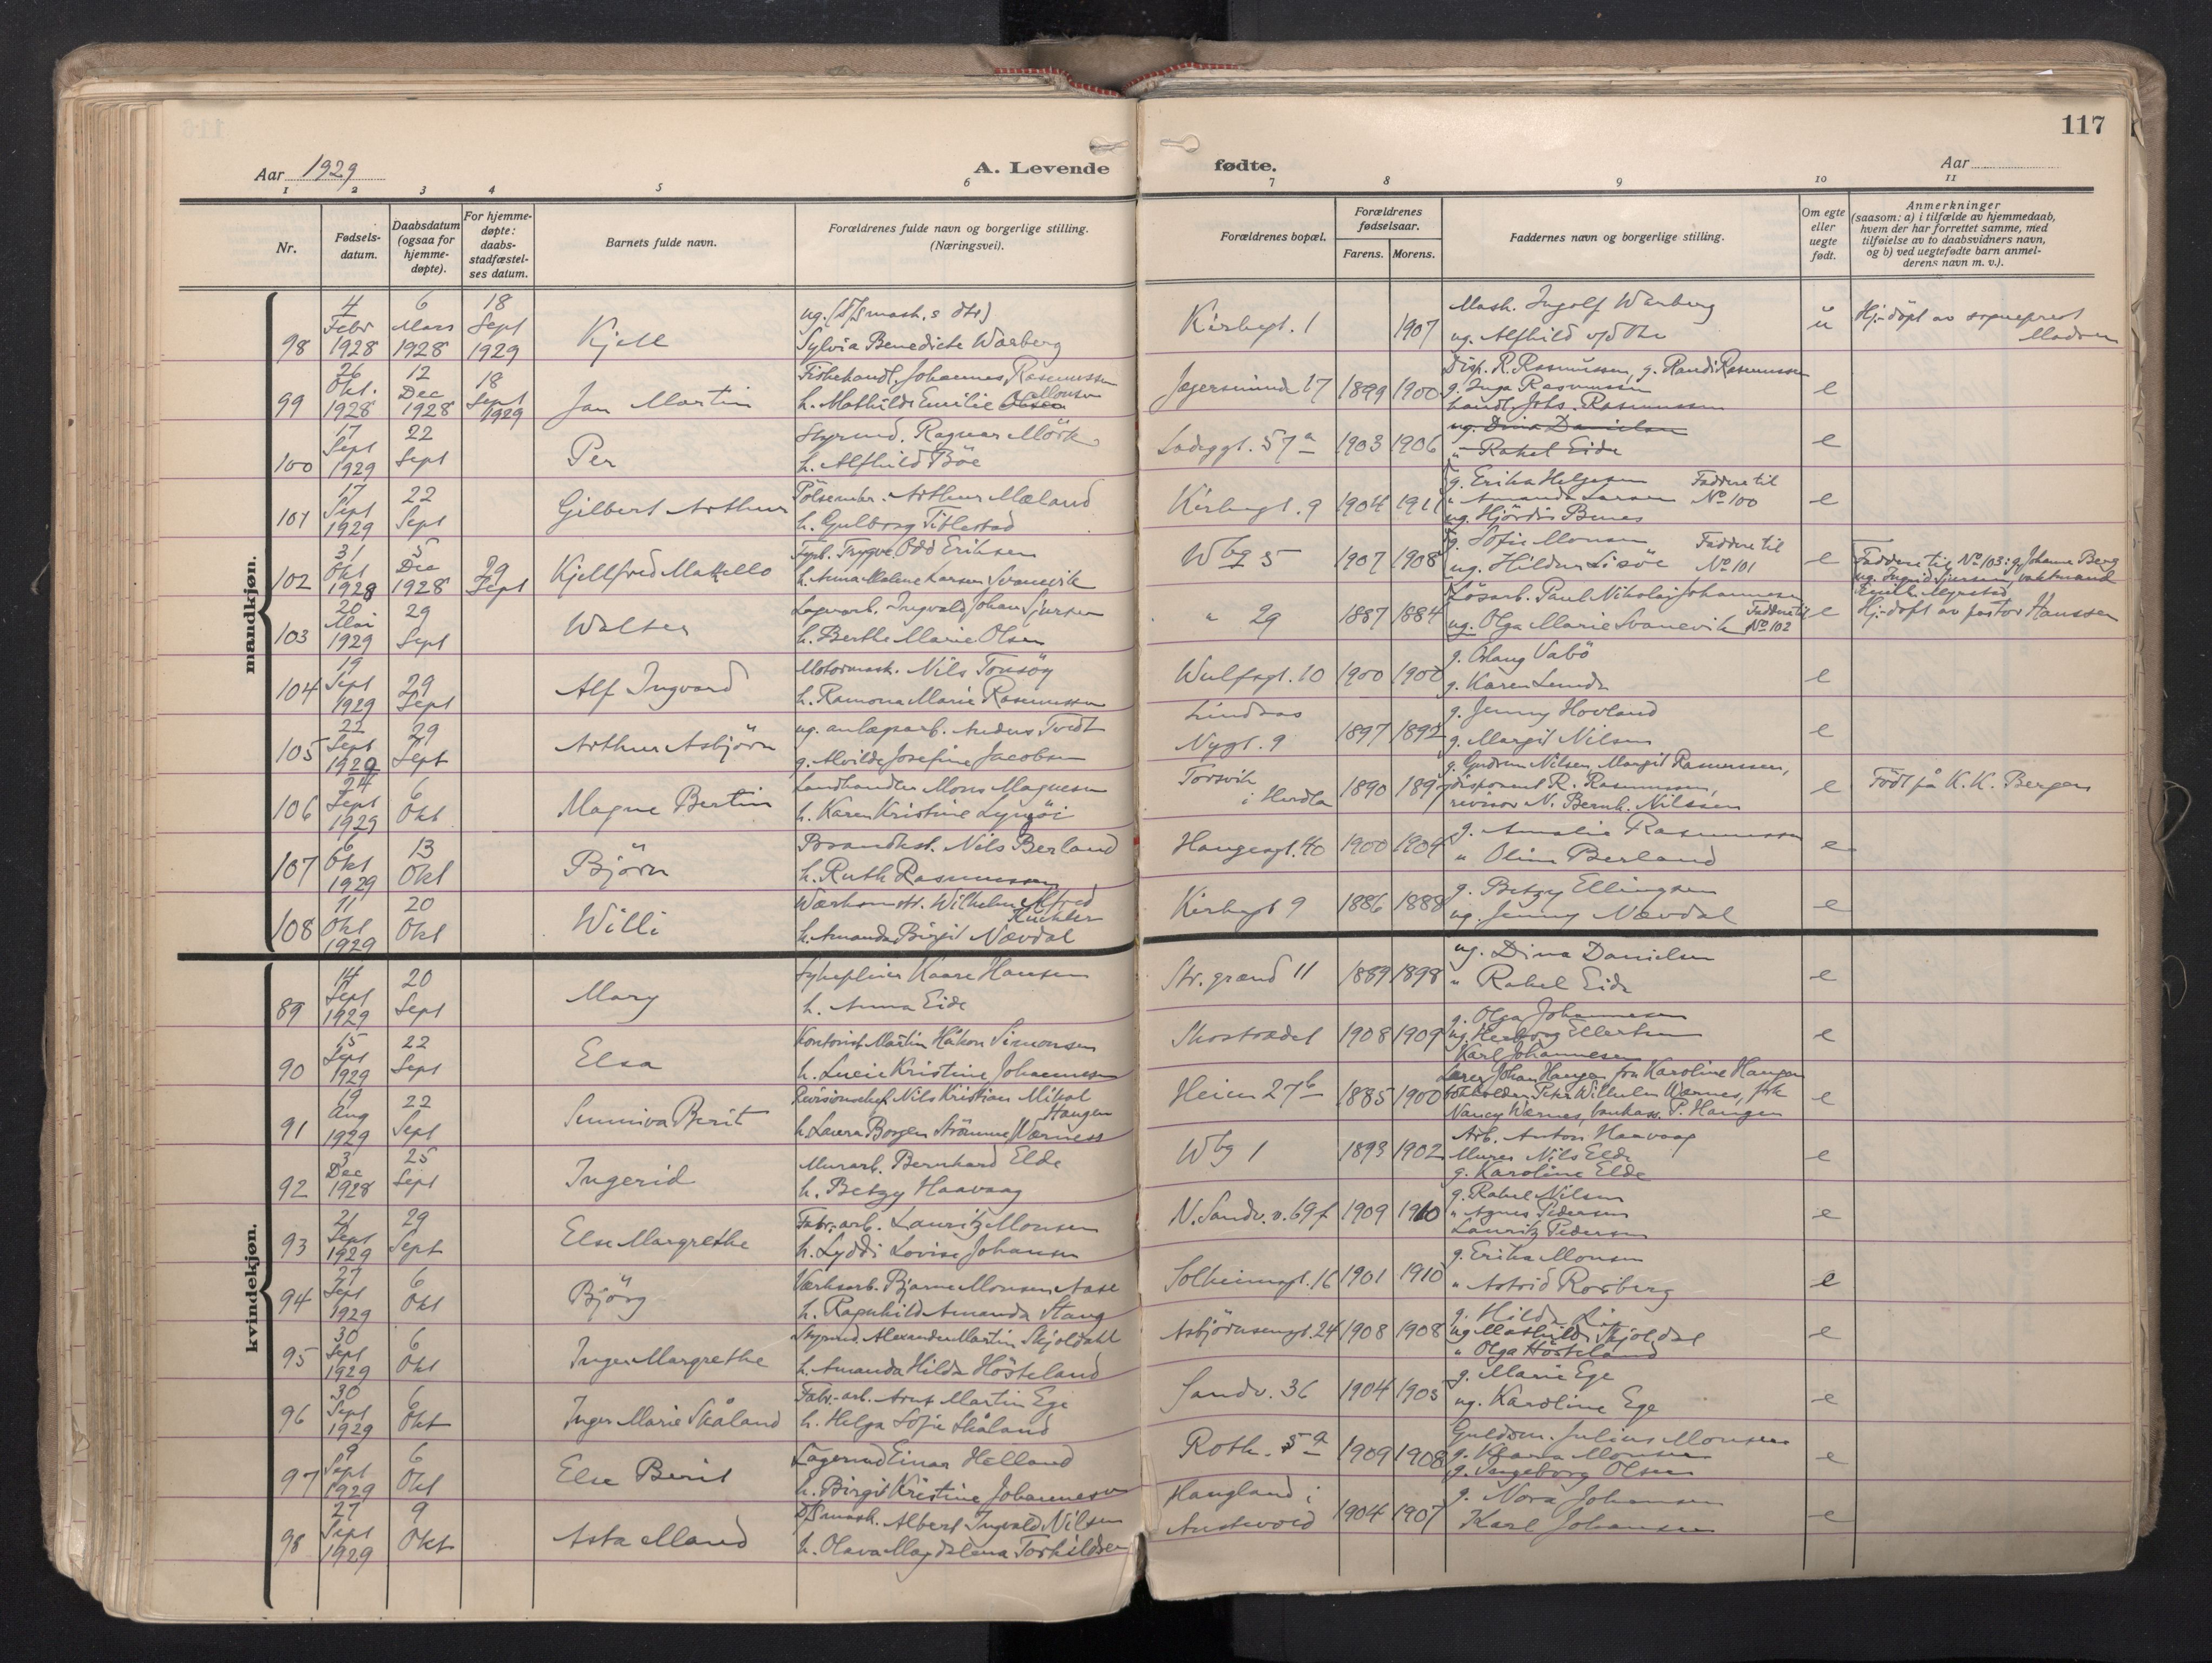 117
Aar 1929
A. Levende
fødte.
Aar
1 2 3 4 5 6
7 8 9 10 11
Nr.
Fødsels-
datum.
Daabsdatum
(ogsaa for
hjemme-
døpte).
For hjemme-
døpte:
daabs-
stadfæstel-
ses datum.
Barnets fulde navn.
Forældrenes fulde navn og borgerlige stilling.
(Næringsvei).
Forældrenes bopæl.
Forældrenes
fødselsaar.
Farens. Morens.
Faddernes navn og borgerlige stilling.
Om egte
eller
uegte
født.
Anmerkninger
(saasom: a) i tilfælde av hjemmedaab,
hvem der har forrettet samme, med
tilføielse av to daabsvidners navn,
og b) ved uegtefødte barn anmel-
derens navn m. v.).
mandkjøn.
98 4 Febr 1928 6 Mars 1928 18 Sept 1929 Kjell
Sylvia Benedicte Warberg
Kirkegt. 1 1907
Mask. Ingolf Warberg
ug. Alfhild
u
Hj.-döpt av sogneprest
99 26 Okt. 1928 12 Dec 1928 18 Sept 1929 Jan Martin
Fiskehandl. Johannes Rasmussen
h. Mathilde Emilie Olsen Monsen
Jægersmind 17 1899 1900
Disp. R. Rasmussen, g. Randi Rasmussen
g. Inga Rasmussen
handl. Johs. Rasmussen
e
100 17 Sept 1929 22 Sept Per
Styrmd. Ragnar Mörk
h. Alfhild Böe
Ladeggt. 57a 1903 1906
ug. Dina Danielsen
" Rakel Eide
e
101 17 Sept 1929 22 Sept Gilbert Arthur
Pölsemkr. Arthur Mæland
h. Gulborg Titlestad
Kirkegt. 9 1904 1911
g. Erika Helgesen
" Amanda Larsen
ug. Hjördis
Faddere til
No 100
e
102 31 Okt 1928 5 Dec 1928 29 Sept Kjellfred Matello
Typ. Trygve Odd Eriksen
h. Anna Malene Larsen Svanevik
Wbg 5 1907 1908
g. Sofie Monsen
ug. Hildur Lisöe
Faddere til
No 101
e
Faddere til No 103: g. Johanne Berg
103 20 Mai 1929 29 Sept Walter
Lagerarb. Ingvald Johan
h. Berthe Marie Olsen
" 29 1887 1884
Lösarb. Paul Nikolai Johannesen
ug. Olga Marie Svanevik
Faddere til
No 102
e
Hj.-döpt av pastor Hanssen
104 19 Sept 1929 29 Sept Alf Ingvard
Motormask. Nils Toresöy
h. Ramona Marie Rasmussen
Wulfsgt. 10 1900 1900
g. Vabö
g. Karen
e
105 22 Sept 1929 29 Sept Arthur Asbjörn
ug. anlægsarb. Anders Tvedt
g. Alvilde Josefine Jacobsen
Lindaas
Nygt. 9 1897 1892
g. Jenny Hovland
g. Margit Nilsen
e
106 24 Sept 1929 6 Okt Magne Bertin
Landhandler Mons Magnesen
h. Karen Kristine
Torsvik
i Herdla 1890 1897
g. Gudrun Nilsen, Margit Rasmussen,
disponent R. Rasmussen,
revisor N. Bernh. Nilssen
e
Födt på K. K. Bergen
107 6 Okt 1929 13 Okt Björn
Brandkst. Nils Berland
h. Ruth Rasmussen
Haugesgt. 40 1900 1904
g. Amalie Rasmussen
" Olina Berland
e
108 11 Okt 1929 20 Okt Willi
Wilhelm Alfred
h. Amanda Birgit Nævdal
Kirkegt 9 1886 1888
g. Betzy Ellingsen
ug. Jenny Nævdal
e
kvindekjøn.
89 14 Sept 1929 20 Sept Mary
Sykepleier Kaare Hansen
h. Anna Eide
Str. grænd 11 1889 1898
ug. Dina Danielsen
" Rakel Eide
e
90 15 Sept 1929 22 Sept Elsa
Kontorist Martin Håkon Simonsen
h. Lucie Kristine Johannesen
Skostrædet 1908 1909
g. Olga Johannesen
ug. Herborg Ellertsen
Karl Johannesen
e
91 19 Aug 1929 22 Sept Sunniva Berit
Revisionschef Nils Kristian Mikal
Haugen
h. Laura Borgen Strömme Wærness
Heien 27b 1885 1900
Lærer Johan Haugen fru Karoline Haugen
bokholder Peter Wilhelm Wærnes, frk
Nancy Wærnes, bankass. P. Haugen
e
92 3 Dec 1928 25 Sept Ingerid
Murarb. Bernhard Elde
h. Betzy Haavaag
Wbg 1 1893 1902
Arb. Anton Haavaag
Murer Nils Elde
g. Karoline Elde
e
93 21 Sept 1929 29 Sept Else Margrethe
Fabr.-arb. Lauritz Monsen
h. Lyddi Lovise Johansen
N. Sandv. v. 69f 1909 1910
g. Rakel Nilsen
" Agnes Pedersen
Lauritz Pedersen
e
94 27 Sept 1929 6 Okt Björg
Værksarb. Bjarne Monsen Aase
h. Ragnhild Amanda Stang
Solheimsgt. 16 1901 1910
g. Erika Monsen
" Astrid Rosberg
e
95 30 Sept 1929 6 Okt Inger Margrethe
Styrmd. Alexander Martin Skjoldahl
h. Amanda Hilda Hösteland
Asbjörnsensgt. 24 1908 1908
g. Hilda
ug Mathilde Skjoldal
" Olga Hösteland
e
96 30 Sept 1929 6 Okt Inger Marie Skåland
Fabr.-arb. Arnt Martin Ege
h. Helga Sofie Skåland
Sandv. 36 1904 1905
g. Marie Ege
ug. Karoline Ege
e
97 9 Sept 1929 6 Okt Else Berit
Lagermd Einar Helland
h. Birgit Kristine Johannesen
Roth. 5a 1909 1908
Guldsm. Julius Monsen
g. Klara Monsen
g. Ingeborg Olsen
e
98 27 Sept 1929 9 Okt Asta Maud
D/S mask. Albert Ingvald Nilsen
h. Olava Magdalena Torkildsen
Haugland i
Austevold 1904 1907
g. Nora Johansen
Karl Johansen
e